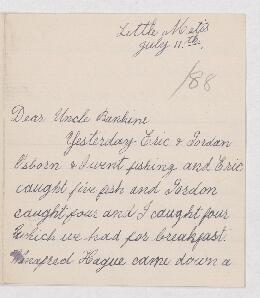 Little Metis
July 11th.
/88
Dear Uncle Rankine
Yesterday Eric & Gordon
Osborn & I went fishing and Eric
caught five fish and Gordon
caught four and I caught four
which we had for breakfast.
Winnefred Hague came down a